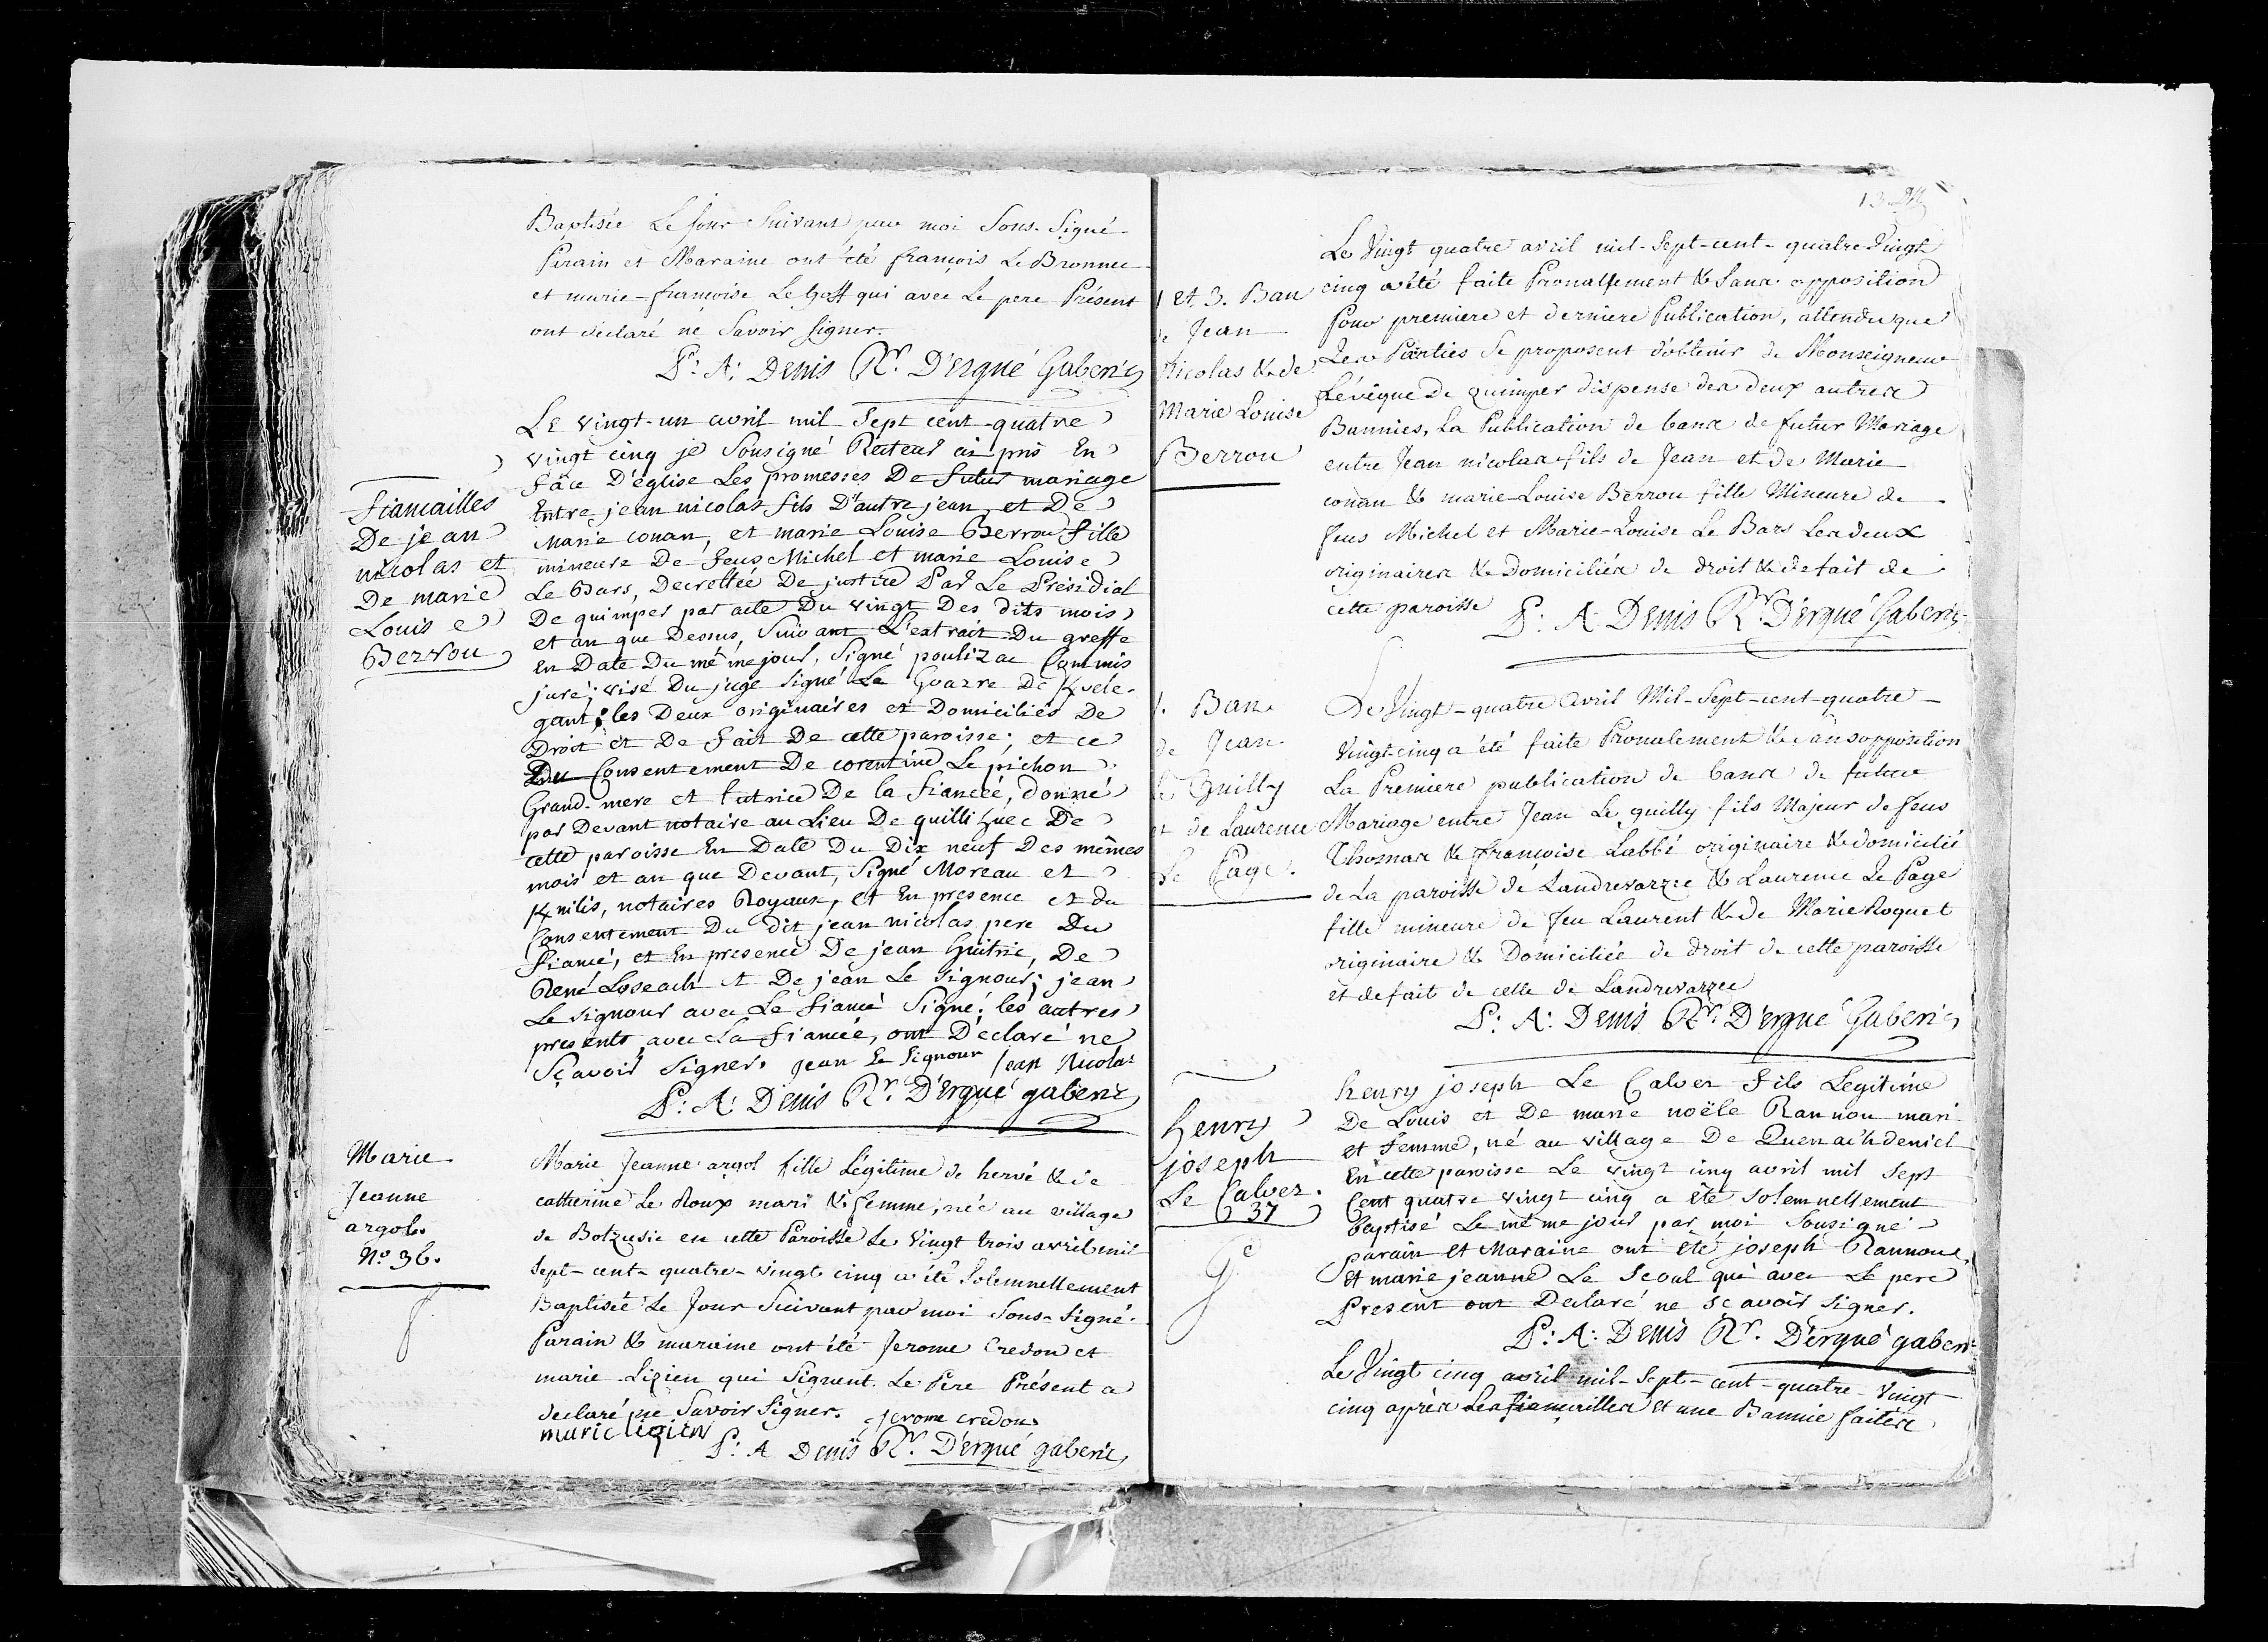 Baptisée Le jour Suivant par moi Sous-Signé
Parain et Maraine ont été françois Le Bronnec
et marie-françoise Le Goff qui avec Le pere Présent
ont déclaré ne Savoir signer.
P: A: Denis Rr. D'ergué Gaberic
Fiancailles
De jean
nicolas et
De marie
Louise
Berrou
Le vingt-un avril mil Sept cent-quatre
vingt cinq je Sousigné Recteur ai pris En
face D'église Les promesses De futur mariage
Entre jean nicolas fils D'autre jean et De
Marie conan, et marie Louise Berrou fille
mineure De feus Michel et marie Louise
Le Bars, Decrettée De justice Par Le Présidial
De quimper par acte Du vingt Des dits mois
et an que Dessus, Suivant L'extrait Du greffe
En Date Du même jour, Signé poulizac Commis
juré; visé Du juge signé Le Goazre De Kvele-
gant; les Deux originaires et Domiciliés De
Droit et De fait De cette paroisse; et ce
Du Consentement De corentine Le pichon
Grand-mere et tutrice De la fiancée, donné
par Devant notaire au Lieu De quillihuec De
cette paroisse En Date Du Dix neuf Des mêmes
mois et an que Devant, Signé Moreau et
Knilis, notaires Royaux, et En presence et du
Consentement Du dit jean nicolas pere Du
fiancé, et En presence De jean Guitric, De
René Loseach et De jean Le Signour; jean
Le Signour avec Le fiancé Signé; les autres
presents avec La fiancée, ont Déclaré ne
Sçavoir Signer. jean Le Signour jean Nicolas
P: A: Denis Rr. D'ergué gaberic
Marie
Jeanne
argol.
No. 36.
Marie Jeanne argol fille Légitime de hervé & de
catherine Le Roux mari & femme, née au village
de Botzusic en cette Paroisse Le Vingt trois avril mil
sept-cent-quatre-vingt cinq a été Solemnellement
Baptisée Le Jour Suivant par moi Sous-Signé
Parain & maraine ont été Jerome Credou et
marie Lizien qui Signent. Le Père Présent a
déclaré ne Savoir Signer. jerome credou
marie lizien
P: A Denis Rr. D'ergué gaberic
13
1 et 3. Ban
de Jean
Nicolas & de
Marie Louise
Berrou
Le Vingt quatre avril mil-Sept-cent-quatre Vingt
cinq a été faite Pronalement & Sans opposition
pour premiere et derniere Publication, attendu que
Les Parties Se proposent d'obtenir de Monseigneur
L'évêque De quimper dispense des deux autres
Bannies, La Publication de bans de futur Mariage
entre Jean nicolas fils de Jean et de Marie
conan & marie-Louise Berrou fille Mineure de
feus Michel et Marie-Louise Le Bars Les deux
originaires & Domiciliés de droit & de fait de
cette paroisse P: A: Denis Rr. D'ergué Gaberic
1. Ban
de Jean
le Quilly
et de Laurence
Le Page.
Le Vingt-quatre Avril Mil-Sept-cent-quatre-
Vingt cinq a été faite Pronalement & sans opposition
La Premiere publication de bans de futur
Mariage entre Jean Le quilly fils Majeur de feus
Thomas & françoise Labbé originaire & domicilié
de La paroisse de Landrevarzec & Laurence Le Page
fille mineure de feu Laurent & de Marie Roquet
originaire & Domiciliée de droit de cette paroisse
et de fait de celle de Landrevarzec
P: A: Denis Rr. D'ergué Gaberic
henry
joseph
Le Calvez.
37
henry joseph Le Calvez fils Legitime
De Louis et De marie noële Rannou mari
et Femme, né au village De Quenach deniel
En cette paroisse Le vingt cinq avril mil Sept
Cent quatre vingt cinq a été solemnellement
baptisé Le même jour par moi Sousigné
parain et Maraine ont été joseph Rannou
et marie jeanne Le Scoul qui avec Le pere
Present ont Declaré ne sçavoir signer.
P: A: Denis Rr. D'ergué gaberic
Le Vingt cinq avril mil-Sept-cent-quatre-Vingt-
cinq après Les fiançailles et une Bannie faites